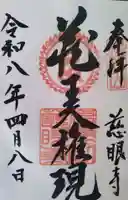 奉拝
慈眼寺
花王権現
令和八年四月八日